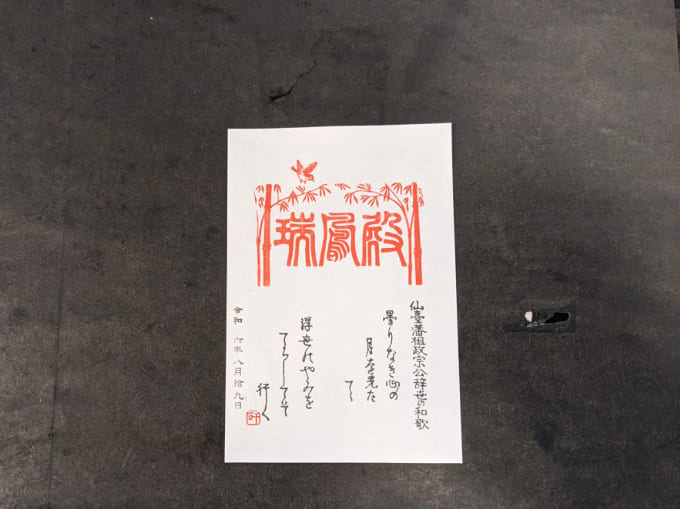 瑞鳳殿
仙臺藩祖政宗公辞世の和歌
曇りなき心の
月を先た
てゝ
浮世のやみを
てらしてそ
行く
令和 六年八月拾九日